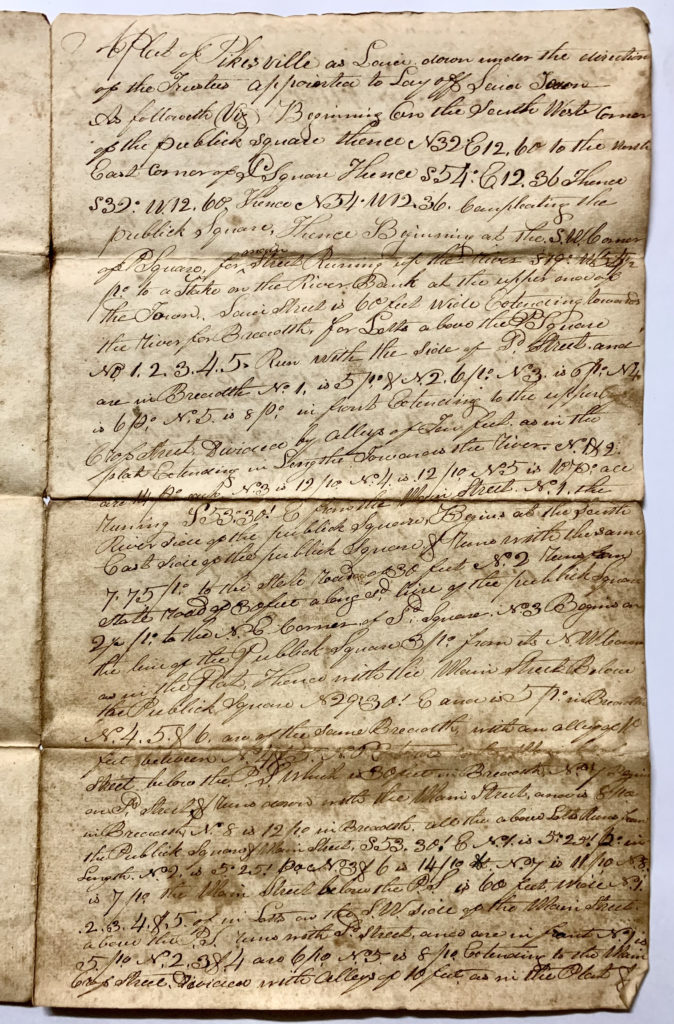 A Plat of Pikesville as Laid down under the direction
of the Trustees appointed to Lay off Said Town
As followeth (Viz) Beginning on the South West Corner
of the publick Square thence N 32° E 12, 60 to the North
East Corner of Sd Square Thence S 54° E 12. 36 Thence
S 32° W. 12. 60 Thence N 54° W 12. 36. Compleating the
publick Square, Thence Beginning at the S. W Corner
of P Square, for Street Running up the River S 19°
po to a Stake on the River Bank at the upper end of
the Town. Said Street is 60 feet wide Extending towards
the River for Breadth, for Lotts above the P Square
No 1. 2. 3. 4. 5. Run with the side of Sd Street. and
are in Breadth No 1, is 5 po & N 2. 6 po No 3. is 6 po N 4
is 6 po No 5. is 8 po in front Extending to the upper
Cross Street Divided by alleys of Ten feet. as in the
plat Extending in Length Towards the River. No 1 & 2.
are 14 po No 3 is 12 po No 4. is 12 po No 5 is 10 po all
Running S 53. 30! E from the Main Street. No 1. the
River side of the publick Square, Begins at the South
East side of the publick Square & Runs with the same
7. 75 po to the State Road of 30 feet No 2 Runs from
State Road of 30 feet along Sd line of the publick Square
po to the N. E Corner of Sd Square. No 3 Begins on
the line of the Publick Square 3 po from its N W Corner
as in the Plat, Thence with the Main Street Below
the Publick Square N 29. 30! E and is 5 po in Breadth
No 4. 5 & 6 are of the same Breadth, with an alley of 10
feet between
Street below the P. S which is 30 feet in Breadth, No 7 Begins
on Sd Street & Runs down with the Main Street, and is 8 po
in Breadth, No 8 is 12 po in Breadth. all the above Lotts Runs from
the Publick Square & Main Street, S 53. 30! E No 1. is 5. 25 po in
Length. No 2. is 5. 25 po No 3 & 6 is 14 po No 7 is 11 po No 8.
is 7 po the Main Street below the P S is 60 feet wide No 1.
2. 3. 4. & 5. of in Lotts on the S. W side of the Main Street
above the P. S. Runs with Sd Street, and are in front No 1 is
5 po No 2. 3 & 4 are 6 po No 5 is 8 po Extending to the Main
Cross Street. Divided with Alleys of 10 feet as in the Plat &